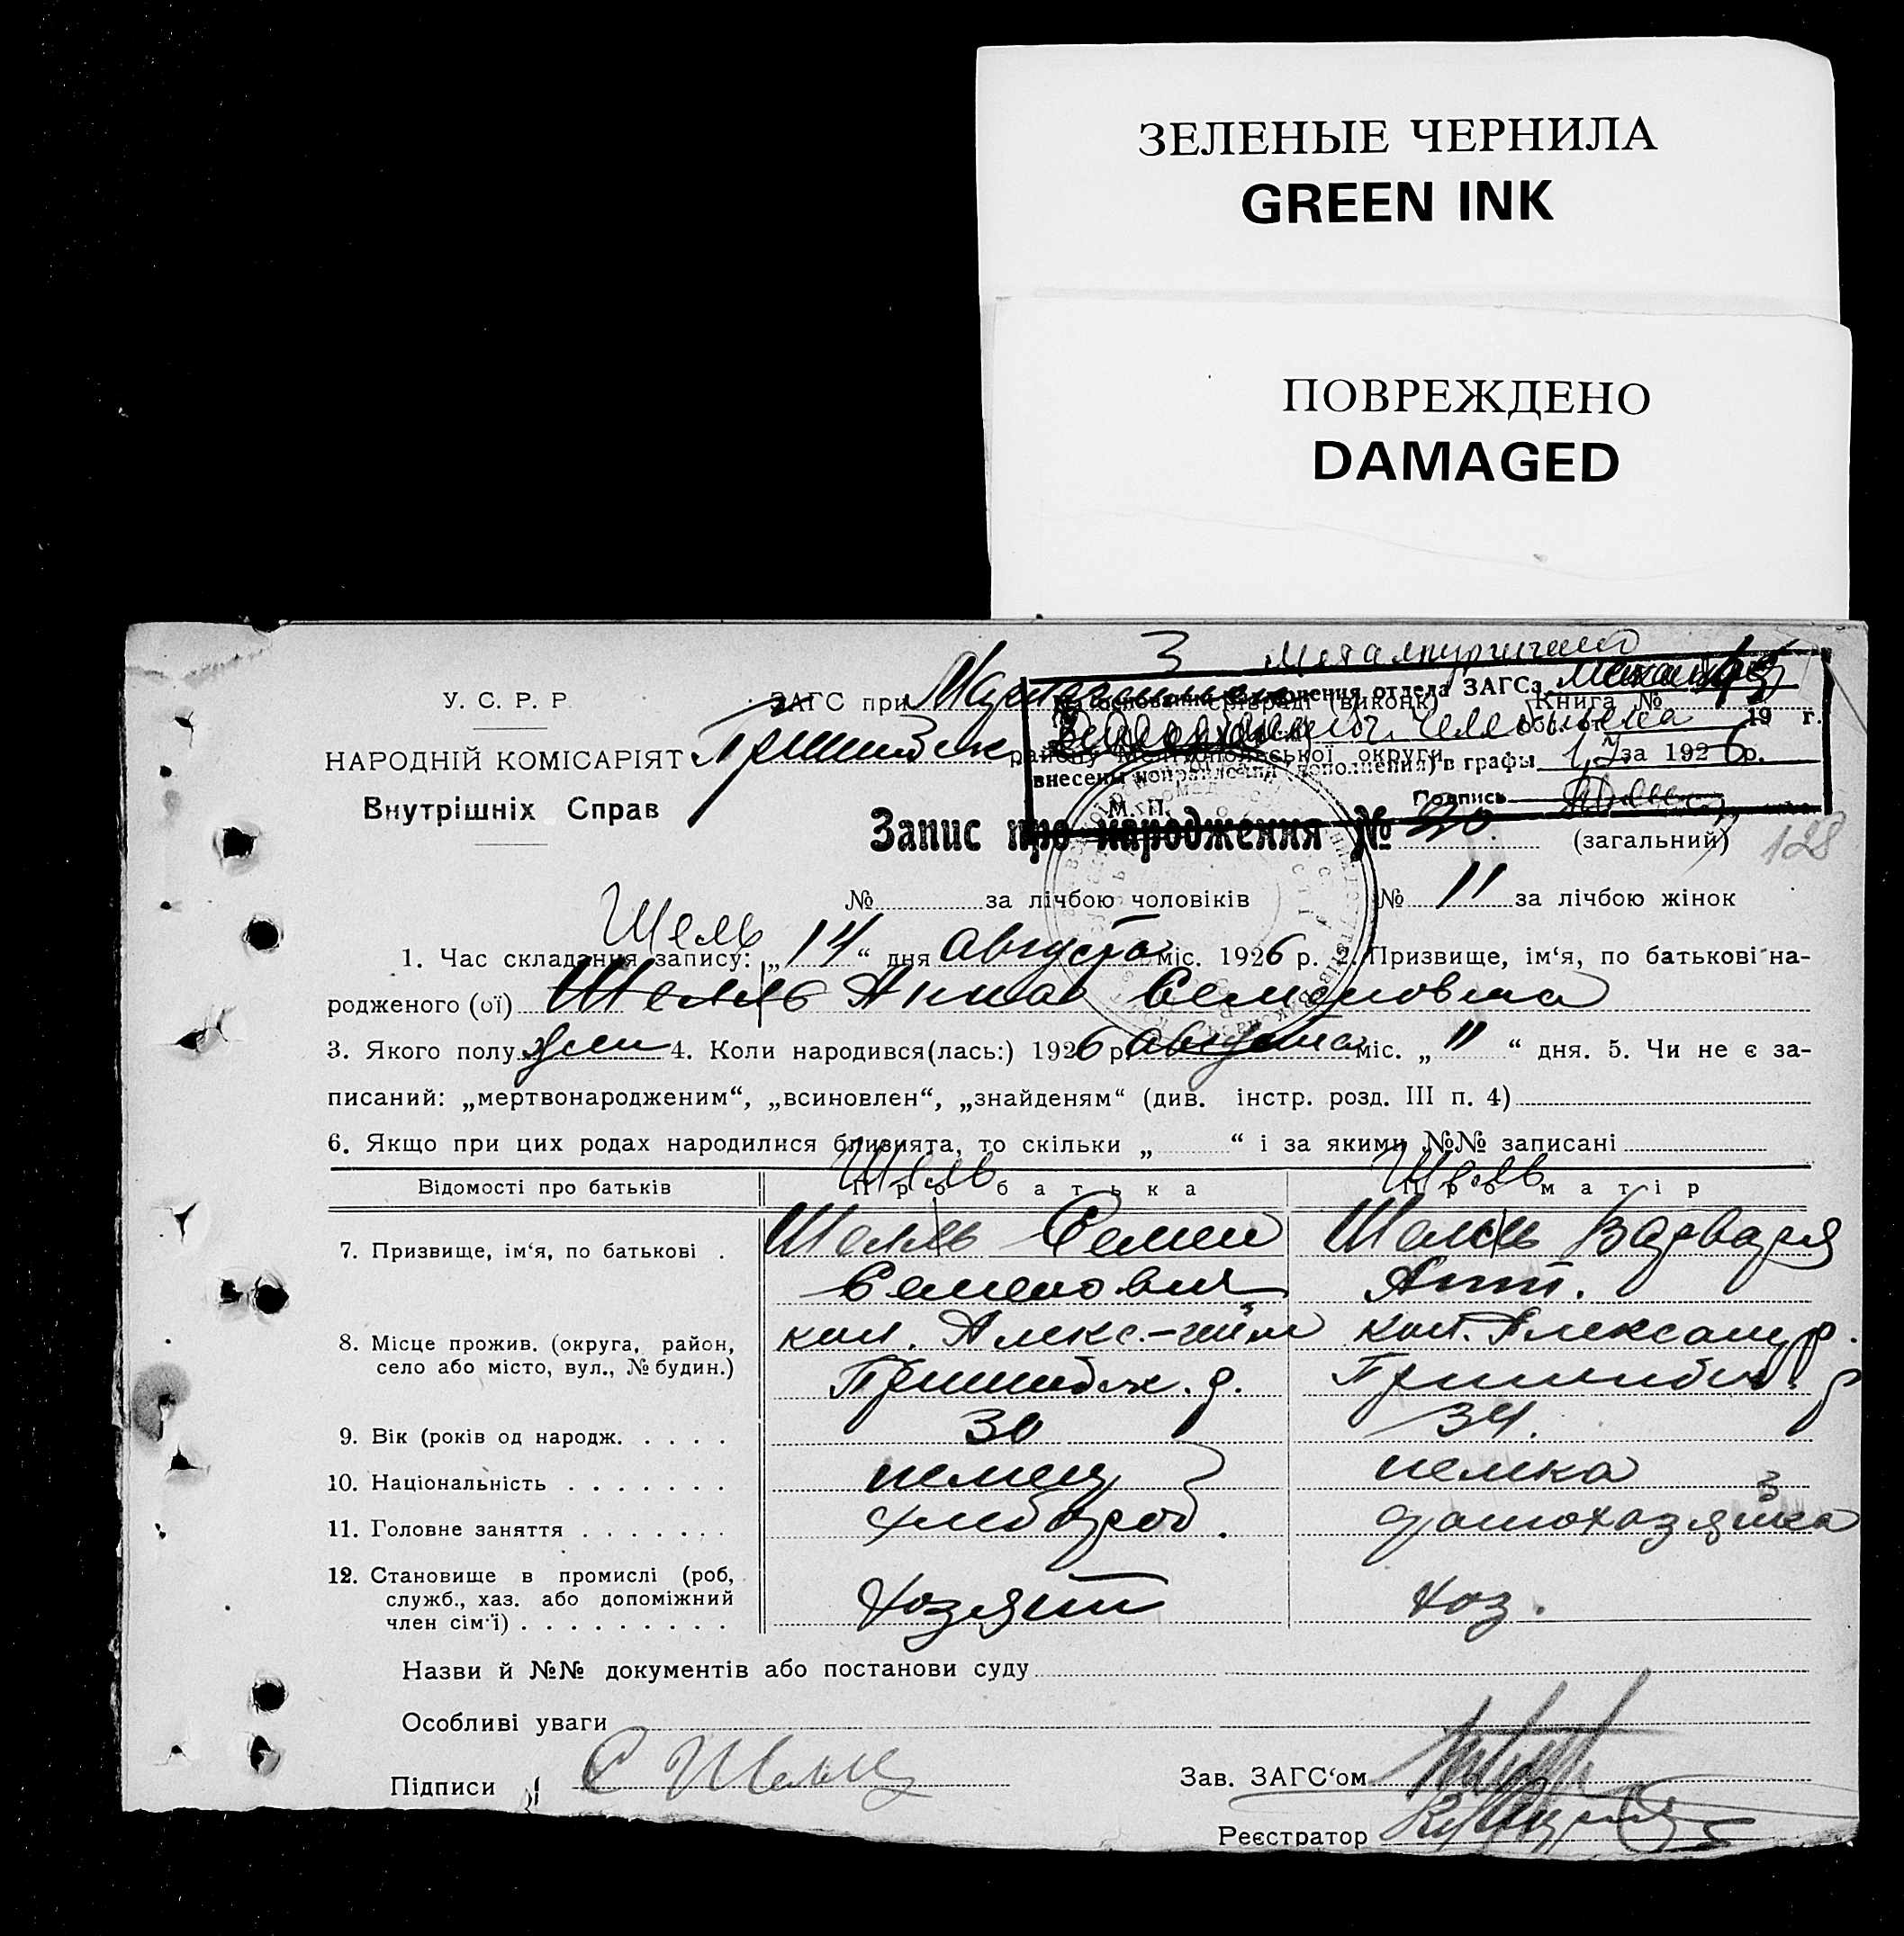 ЗЕЛЕНЫЕ ЧЕРНИЛА
GREEN INK
ПОВРЕЖДЕНО
DAMAGED
У. С. Р. Р.
НАРОДНІЙ КОМІСАРІЯТ
Внутрішніх Справ
ЗАГС при сільраді (виконк) Книга №
району Мелітопольської округи за 1926 р.
отдела ЗАГС
19 г.
внесены исправления (дополнения) в графы 1,7
Подпись
М. П.
Запис про народження № 20 (загальний)
128
№ за лічбою чоловіків № 11 за лічбою жінок
Шель
1. Час складання запису: „14“ дня августа міс. 1926 р. 2. Призвище, ім‘я, по батькові на-
родженого (ої) Шелль Анна Семеновна
3. Якого полу жен 4. Коли народився(лась:) 1926 р. августа міс. „11“ дня. 5. Чи не є за-
писаний: „мертвонародженим“, „всиновлен“, „знайденям“ (див. інстр. розд. III п. 4)
6. Якщо при цих родах народилися близнята, то скільки „ “ і за якими №№ записані
Шель Шель
Відомості про батьків Про батька Про матір
7. Призвище, ім‘я, по батькові . Шелль Семен Шелль Варвара
Семенович Ант.
8. Місце прожив. (округа, район, кол. Алекс.- кол. Александр.
село або місто, вул., № будин.) Пришибск. р. Пришибск. р
9. Вік (років од народж. . . . . 30 34.
10. Національність . . . . . . . немец немка
11. Головне заняття . . . . . . . хлебороб. домохазяйка
з
12. Становище в промислі (роб,
служб., хаз. або допоміжний хозяин хоз.
член сім‘ї) . . . . . . . . .
Назви й №№ документів або постанови суду
Особливі уваги
Підписи С Шелль
Зав. ЗАГС‘ом
Реєстратор